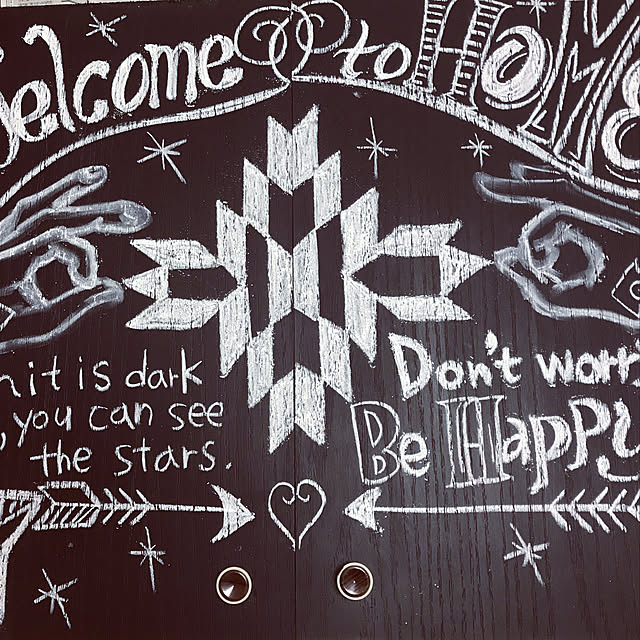 Welcome to HOMe
n it is dark
, you can see
the stars.
Don't worr
Be Happy